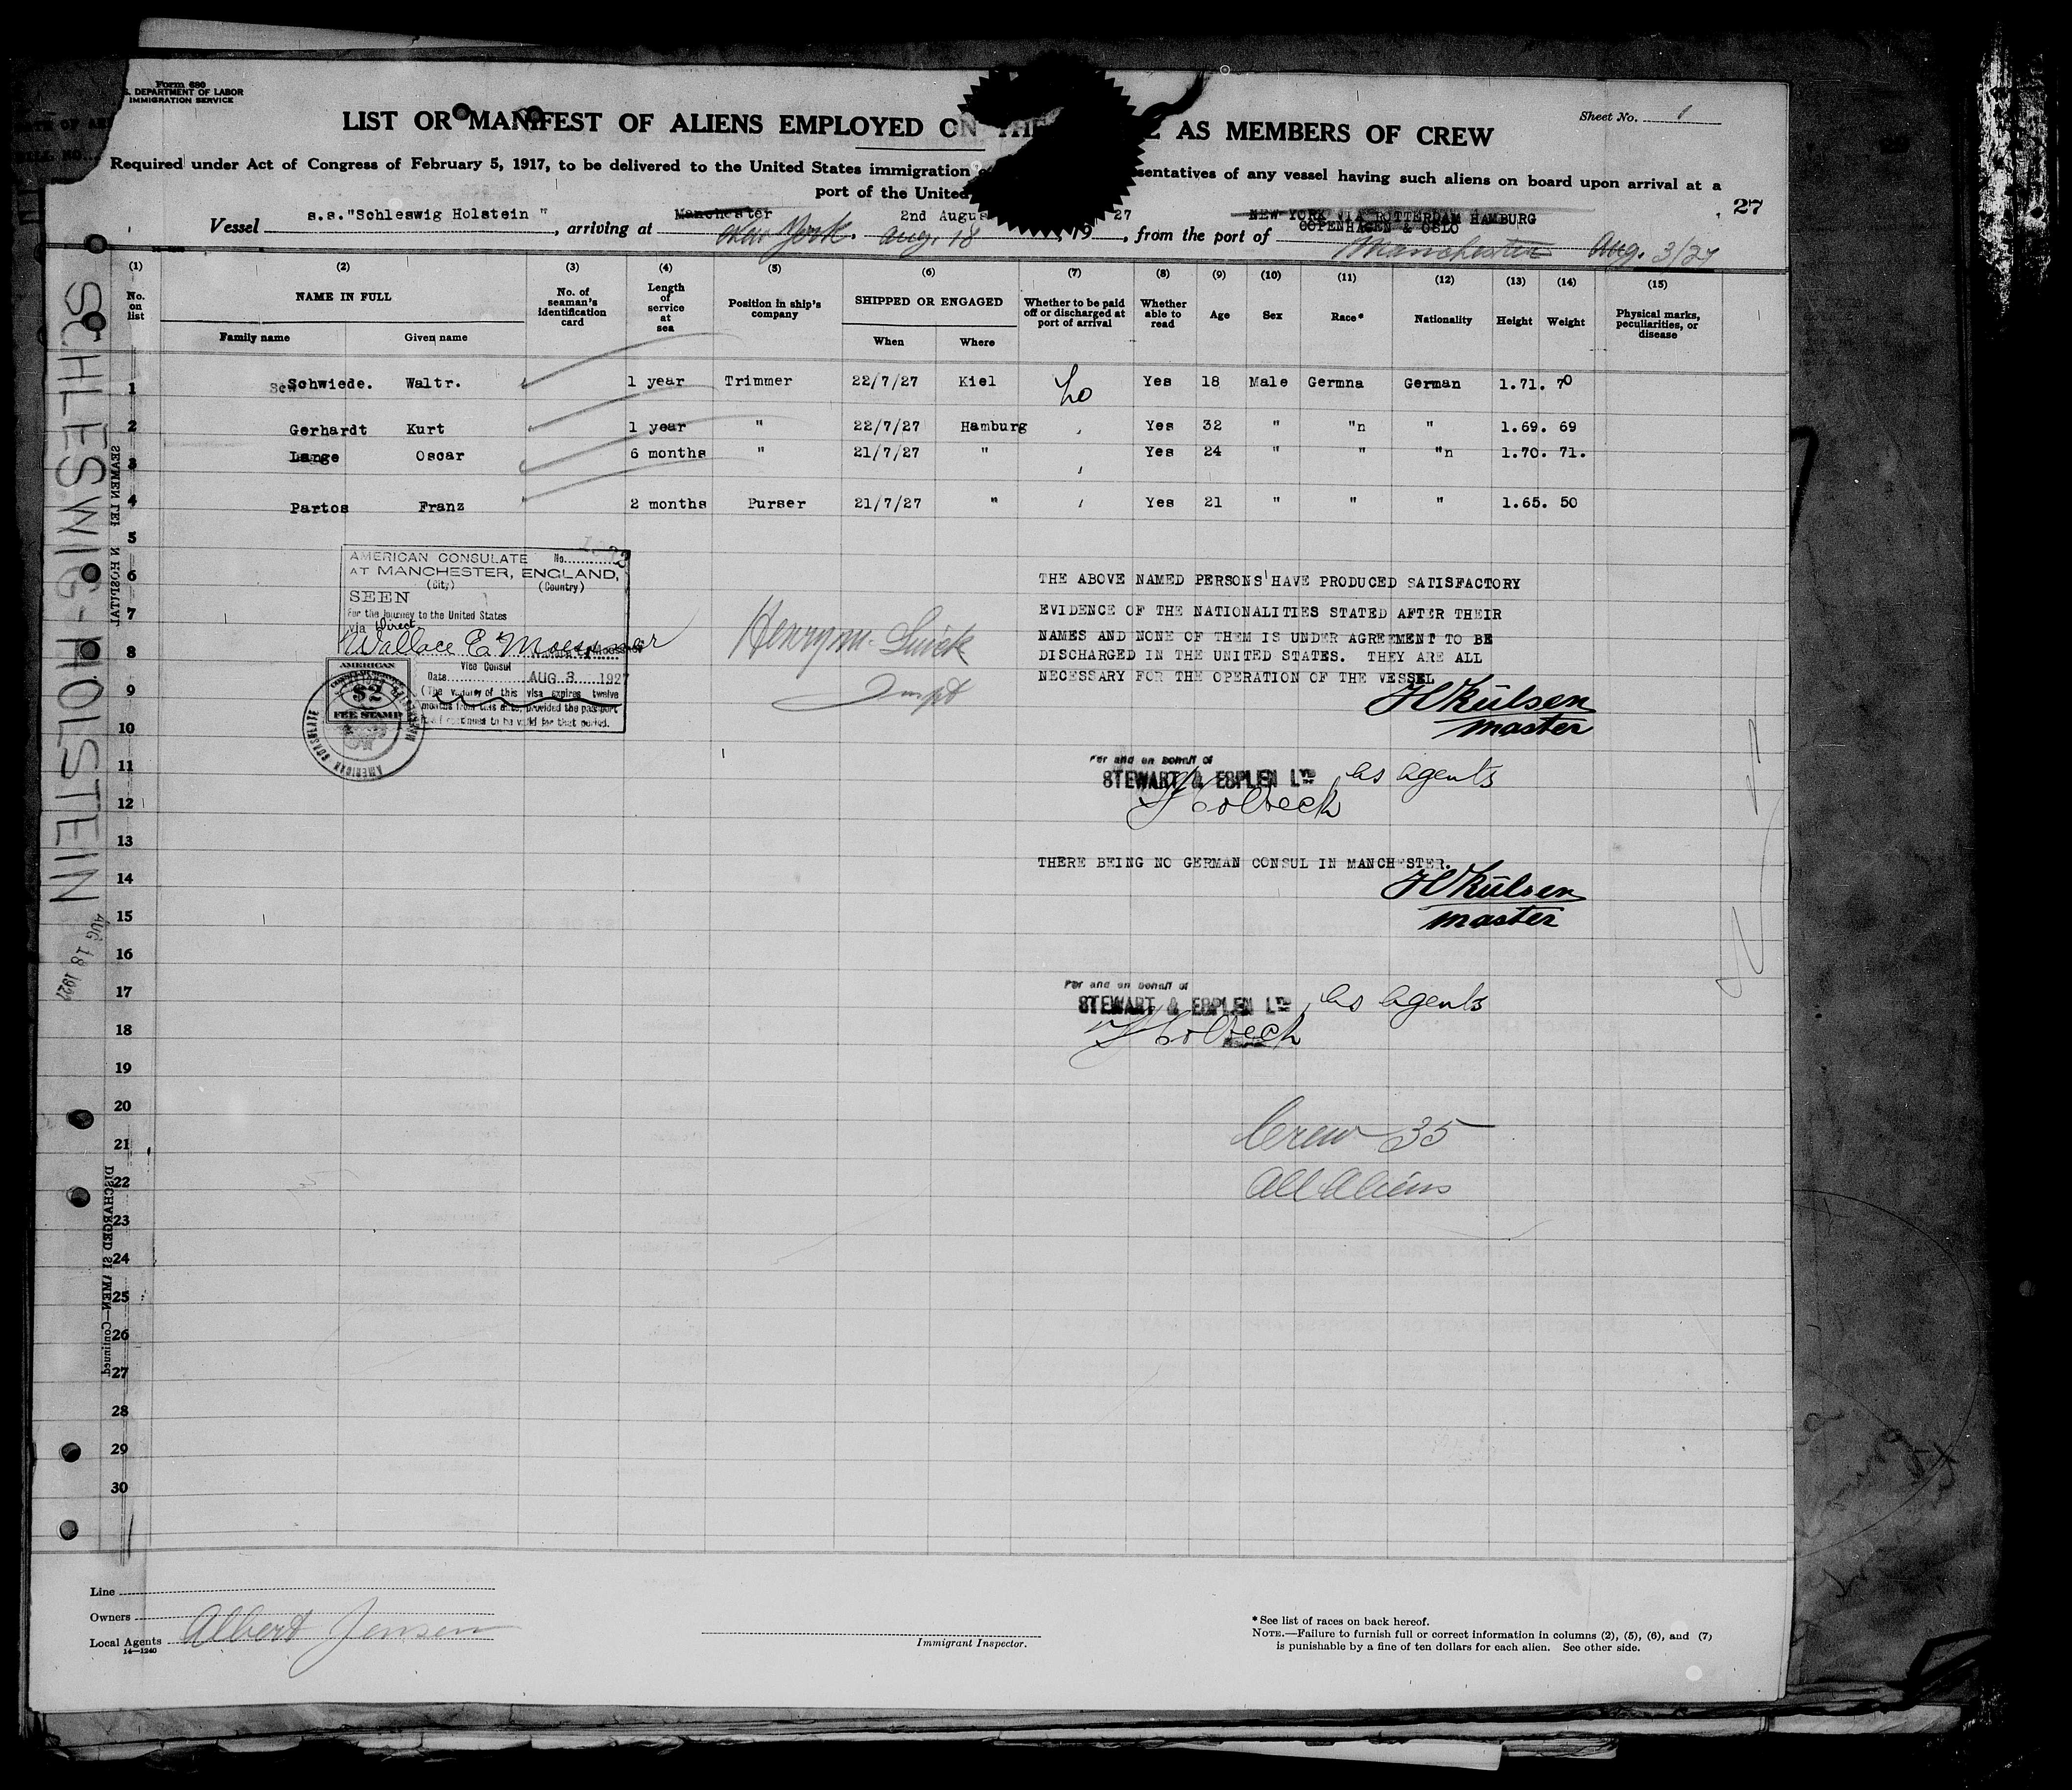 Form 680
DEPARTMENT OF LABOR
IMMIGRATION SERVICE
Sheet No. 1
LIST OR MANIFEST OF ALIENS EMPLOYED ON THE AS MEMBERS OF CREW
Required under Act of Congress of February 5, 1917, to be delivered to the United States immigration sentatives of any vessel having such aliens on board upon arrival at a
port of the United
Manchester 2nd Augus 27 NEW YORK VIA ROTTERDAM HAMBURG 27
Vessel s.s."Schleswig Holstein ", arriving at New York. Aug. 18, 19, from the port of COPENHAGEN & OSLO
Manchester Aug. 3/27
(1) (2) (3) (4) (5) (6) (7) (8) (9) (10) (11) (12) (13) (14) (15)
No. on list NAME IN FULL No. of seaman's identification card Length of service at sea Position in ship's company SHIPPED OR ENGAGED Whether to be paid off or discharged at port of arrival Whether able to read Age Sex Race* Nationality Height Weight Physical marks, peculiarities, or disease
Family name Given name When Where
1 Schwiede. Waltr. 1 year Trimmer 22/7/27 Kiel No Yes 18 Male Germna German 1.71. 70
2 Gerhardt Kurt 1 year " 22/7/27 Hamburg Yes 32 " "n " 1.69. 69
3 Lange Oscar 6 months " 21/7/27 " Yes 24 " " "n 1.70. 71.
4 Partos Franz 2 months Purser 21/7/27 " Yes 21 " " " 1.65. 50
5
6
7
8
9
10
11
12
13
14
15
16
17
18
19
20
21
22
23
24
25
26
27
28
29
30
AMERICAN CONSULATE No.
AT MANCHESTER, ENGLAND,
(City) (Country)
SEEN
For the journey to the United States
via Direct.
Wallace E. Moessner
Vice Consul
Date AUG 3 1927
(The validity of this visa expires twelve
months from this date, provided the passport
continues to be valid for that period.
AMERICAN
$2
FEE STAMP
AMERICAN CONSULATE
Henry M. Quick
Inspt
THE ABOVE NAMED PERSONS HAVE PRODUCED SATISFACTORY
EVIDENCE OF THE NATIONALITIES STATED AFTER THEIR
NAMES AND NONE OF THEM IS UNDER AGREEMENT TO BE
DISCHARGED IN THE UNITED STATES. THEY ARE ALL
NECESSARY FOR THE OPERATION OF THE VESSEL
H Külsen
master
Per and on behalf of
STEWART & ESPLEN LTD as agents
Holbeck
THERE BEING NO GERMAN CONSUL IN MANCHESTER.
H Külsen
master
Per and on behalf of
STEWART & ESPLEN LTD as agents
Holbeck
Crew 35
All Aliens
SCHLESWIG-HOLSTEIN
AUG 18 1927
DISCHARGED SEAMEN—Continued
Line
Owners
Local Agents Albert Jensen
14—1240
Immigrant Inspector.
*See list of races on back hereof.
NOTE.—Failure to furnish full or correct information in columns (2), (5), (6), and (7)
is punishable by a fine of ten dollars for each alien. See other side.